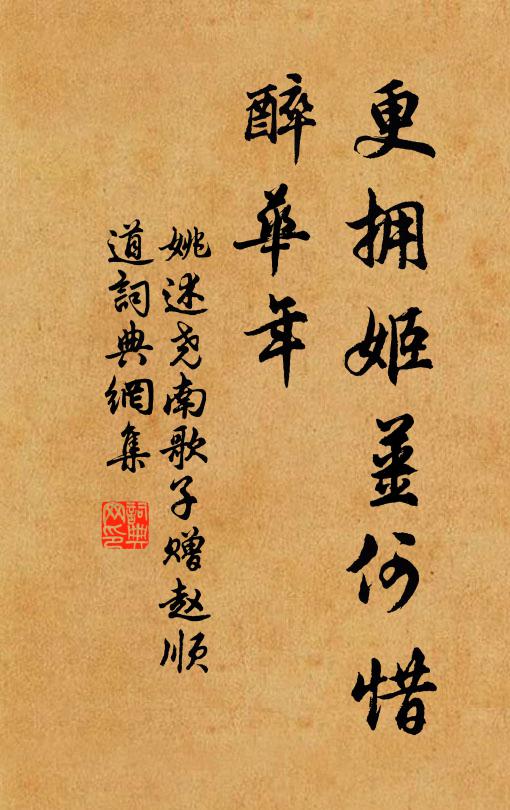 更拥姬姜何惜
醉華年
姚述尧南歌子赠赵顺
道詞典網集
詞典
网印